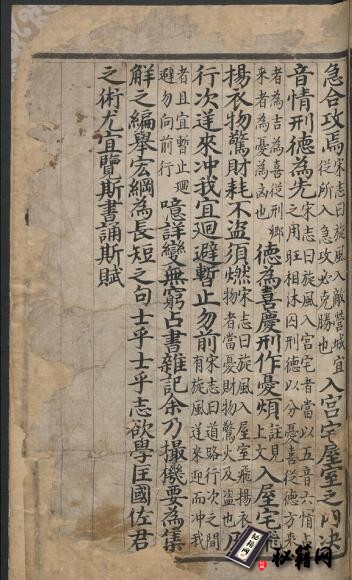 急合攻焉宋志曰旋風入敵營城宜從所入急攻必克勝也入宮宅屋室之內決
音情刑德為先宋志曰旋風入宮宅者當以五音六情占之用旺相休囚刑德以分憂喜從德方來
者為吉為喜從刑鄉來者為憂為凶也德為喜慶刑作憂煩註見上文入屋宅
揚衣物驚財耗不盜須燃宋志曰旋風入屋室飛揚衣物者當憂財物驚火及盜也
行次逆來冲我宜迴避暫止勿前宋志曰道路行次之間有旋風道來迎而冲我
者且宜暫止迴避勿向前行噫詳變無窮占書雜記余乃撮機要為集
解之編舉宏綱為長短之句士乎士乎志欲學匡國佐君
之術尤宜覽斯書誦斯賦
秘籍网